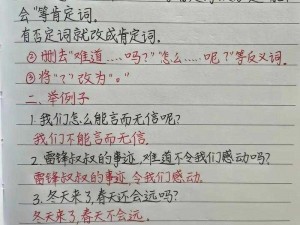 会"等肯定词。
有否定词就改成肯定词。
②删去"难道……吗?""怎么……呢?"等反义词。
③将"?"改为"。"
二、举例子
1.我们怎么能言而无信呢?
我们不能言而无信。
2.雷锋叔叔的事迹,难道不令我们感动吗?
雷锋叔叔的事迹,令我们感动。
3.冬天来了,春天还会远吗?
冬天来了,春天不会远。